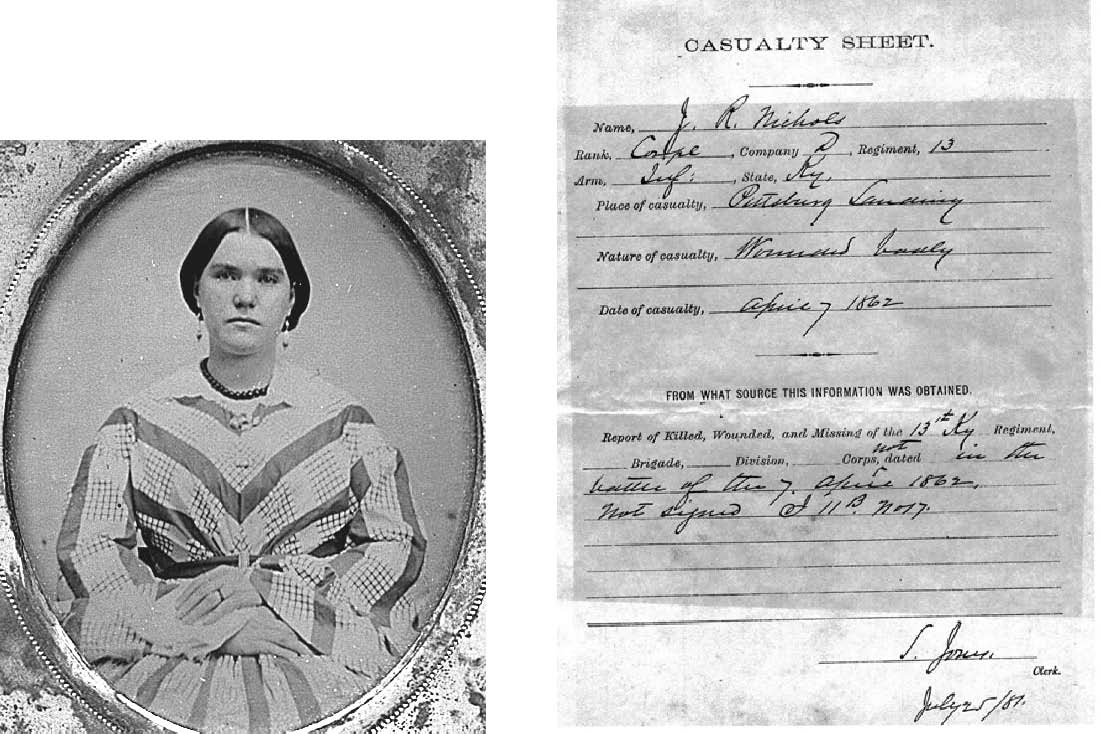 CASUALTY SHEET.
Name, J. R. Nichols
Rank, Corpl, Company D, Regiment, 13
Arm, Inf:, State, Ky.
Place of casualty, Pittsburg Landing
Nature of casualty, Wounded badly
Date of casualty, April 7 1862
FROM WHAT SOURCE THIS INFORMATION WAS OBTAINED.
Report of Killed, Wounded, and Missing of the 13th Ky Regiment,
Brigade, Division, Corps, not dated in the
battle of the 7. April 1862.
Not signed
S. Jones.
Clerk.
July 25/81.